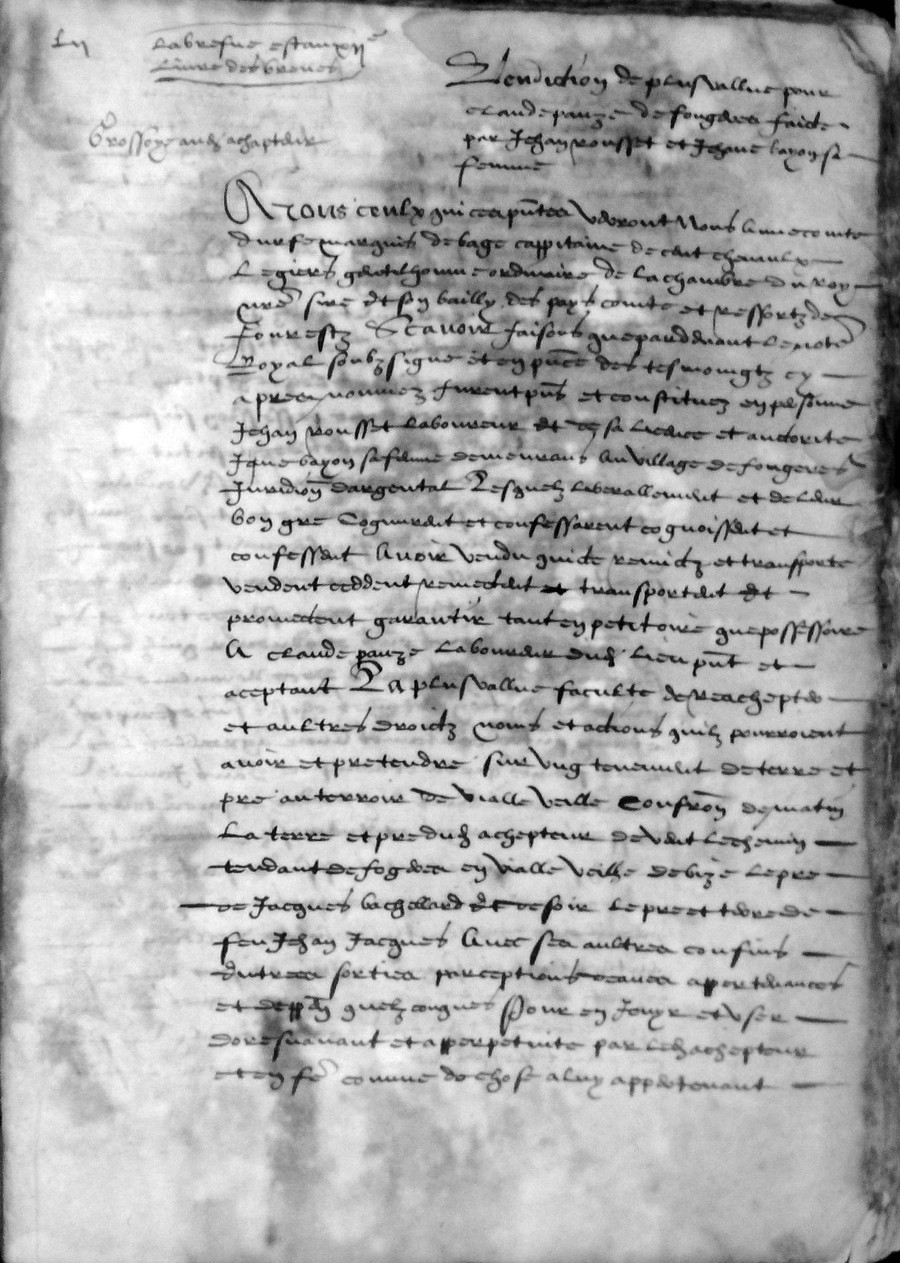 Lii
Labresue est au xii e
Livre des breves
Grossoye aud achapteur
Vendiction de plusvallue pour
claude pauze de fougeres faicte
par Jehan rousset et Jehane bayon sa
femme
A tous ceulx qui ces pntes verront Nous Anne comte
durfe marquis de bage cappitaine de cent chevaulx
Legiers gentilhomme ordinaire de la chambre du roy
nre sire et son bailly des pays comte et ressortz de
Fourestz Scavoir faisons que pardevant le note
Royal soubzsigne et en pnce des tesmoingtz cy
apres nommez furent pns et constituez en personne
Jehan rousset laboureur et de sa licence et auctorite
Jane bayon sa femme demeurans au village de fougeres
Juridion dargental Lesquelz liberallement et de leur
bon gre Cognurent et confessarent cognoissent et
confessent Avoir vendu quicte remidz et transporte
vendent ceddent remectent et transportent et
promectent garantir tant en petitoire que possessoire
A claude pauze laboureur dud lieu pnt et
aceptant La plusvallue faculte de reachepter
et aultres droictz noms et actions quilz pourroient
avoir et pretendre sur ung tenement de terre et
pre au terroir de vialle veille Confron de matin
La terre et pre dud achepteur de vent le chemin
tendant de fogeres en vialle veilhe de bize le pre
de Jacques bachellard et de soir le pre et terre de
feu Jehan Jacques Avec ses aultres confins
entrees sorties parceptions aysances appertenances
et deppen quelzconques Pour en Jouyr et user
doresnavant et a perpetuite par led achepteur
et en fe comme de chose a luy appertenant